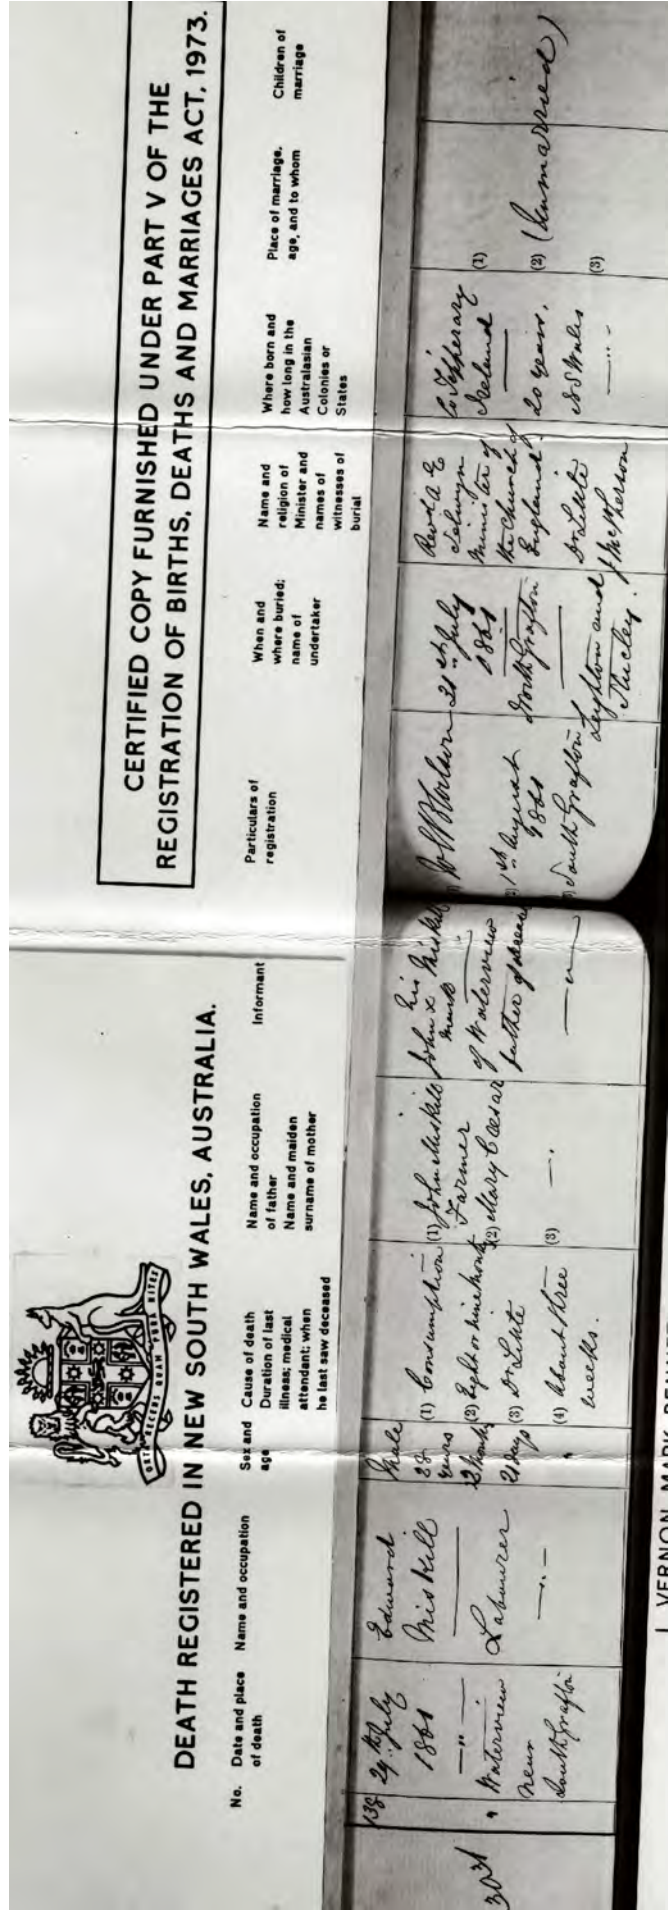 DEATH REGISTERED IN NEW SOUTH WALES, AUSTRALIA.
CERTIFIED COPY FURNISHED UNDER PART V OF THE
REGISTRATION OF BIRTHS, DEATHS AND MARRIAGES ACT, 1973.
No.
Date and place
of death
Name and occupation
Sex and
age
Cause of death
Duration of last
illness; medical
attendant; when
he last saw deceased
Name and occupation
of father
Name and maiden
surname of mother
Informant
Particulars of
registration
When and
where buried;
name of
undertaker
Name and
religion of
Minister and
names of
witnesses of
burial
Where born and
how long in the
Australasian
Colonies or
States
Place of marriage,
age, and to whom
Children of
marriage
138
29th July
1861
Waterview
near
South Grafton
Edward
Miskill
Labourer
Male
28
years
2 Months
21 days
(1) Consumption
(2) Eight or nine months
(3) Dr Little
(4) About three
weeks.
(1) John Miskill
Farmer
(2) Mary Caesar
(3)
his
John X Miskill
mark
of Waterview
father of deceased
(2) 1st August
1861
(3) South Grafton
31st July
1861
North Grafton
Leighton and
Revd A E
Selwyn
Minister of
the Church of
England
Dr Little
J McPherson
Co Tipperary
Ireland
20 years.
N S Wales
(1)
(2) (Unmarried)
(3)